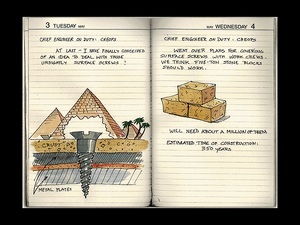 3 TUESDAY MAY
CHIEF ENGINEER ON DUTY: CHEOPS
AT LAST - I HAVE FINALLY CONCEIVED
OF AN IDEA TO DEAL WITH THOSE
UNSIGHTLY SURFACE SCREWS!
CRUST
METAL PLATES
MAY WEDNESDAY 4
CHIEF ENGINEER ON DUTY: CHEOPS
WENT OVER PLANS FOR COVERING
SURFACE SCREWS WITH WORK CREWS.
WE THINK FIVE-TON STONE BLOCKS
SHOULD WORK.
WILL NEED ABOUT A MILLION OF THEM
ESTIMATED TIME OF CONSTRUCTION:
350 YEARS